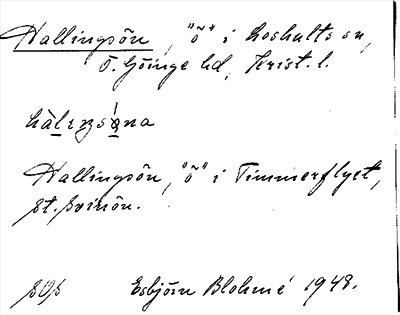 Hallingsön, "ö" i Loshults sn,
Ö. Göinge hd, Krist. l.
Hallingsön, "ö" i Timmerflyet,
St. Svinön.
SOS Esbjörn Blohmé 1948.